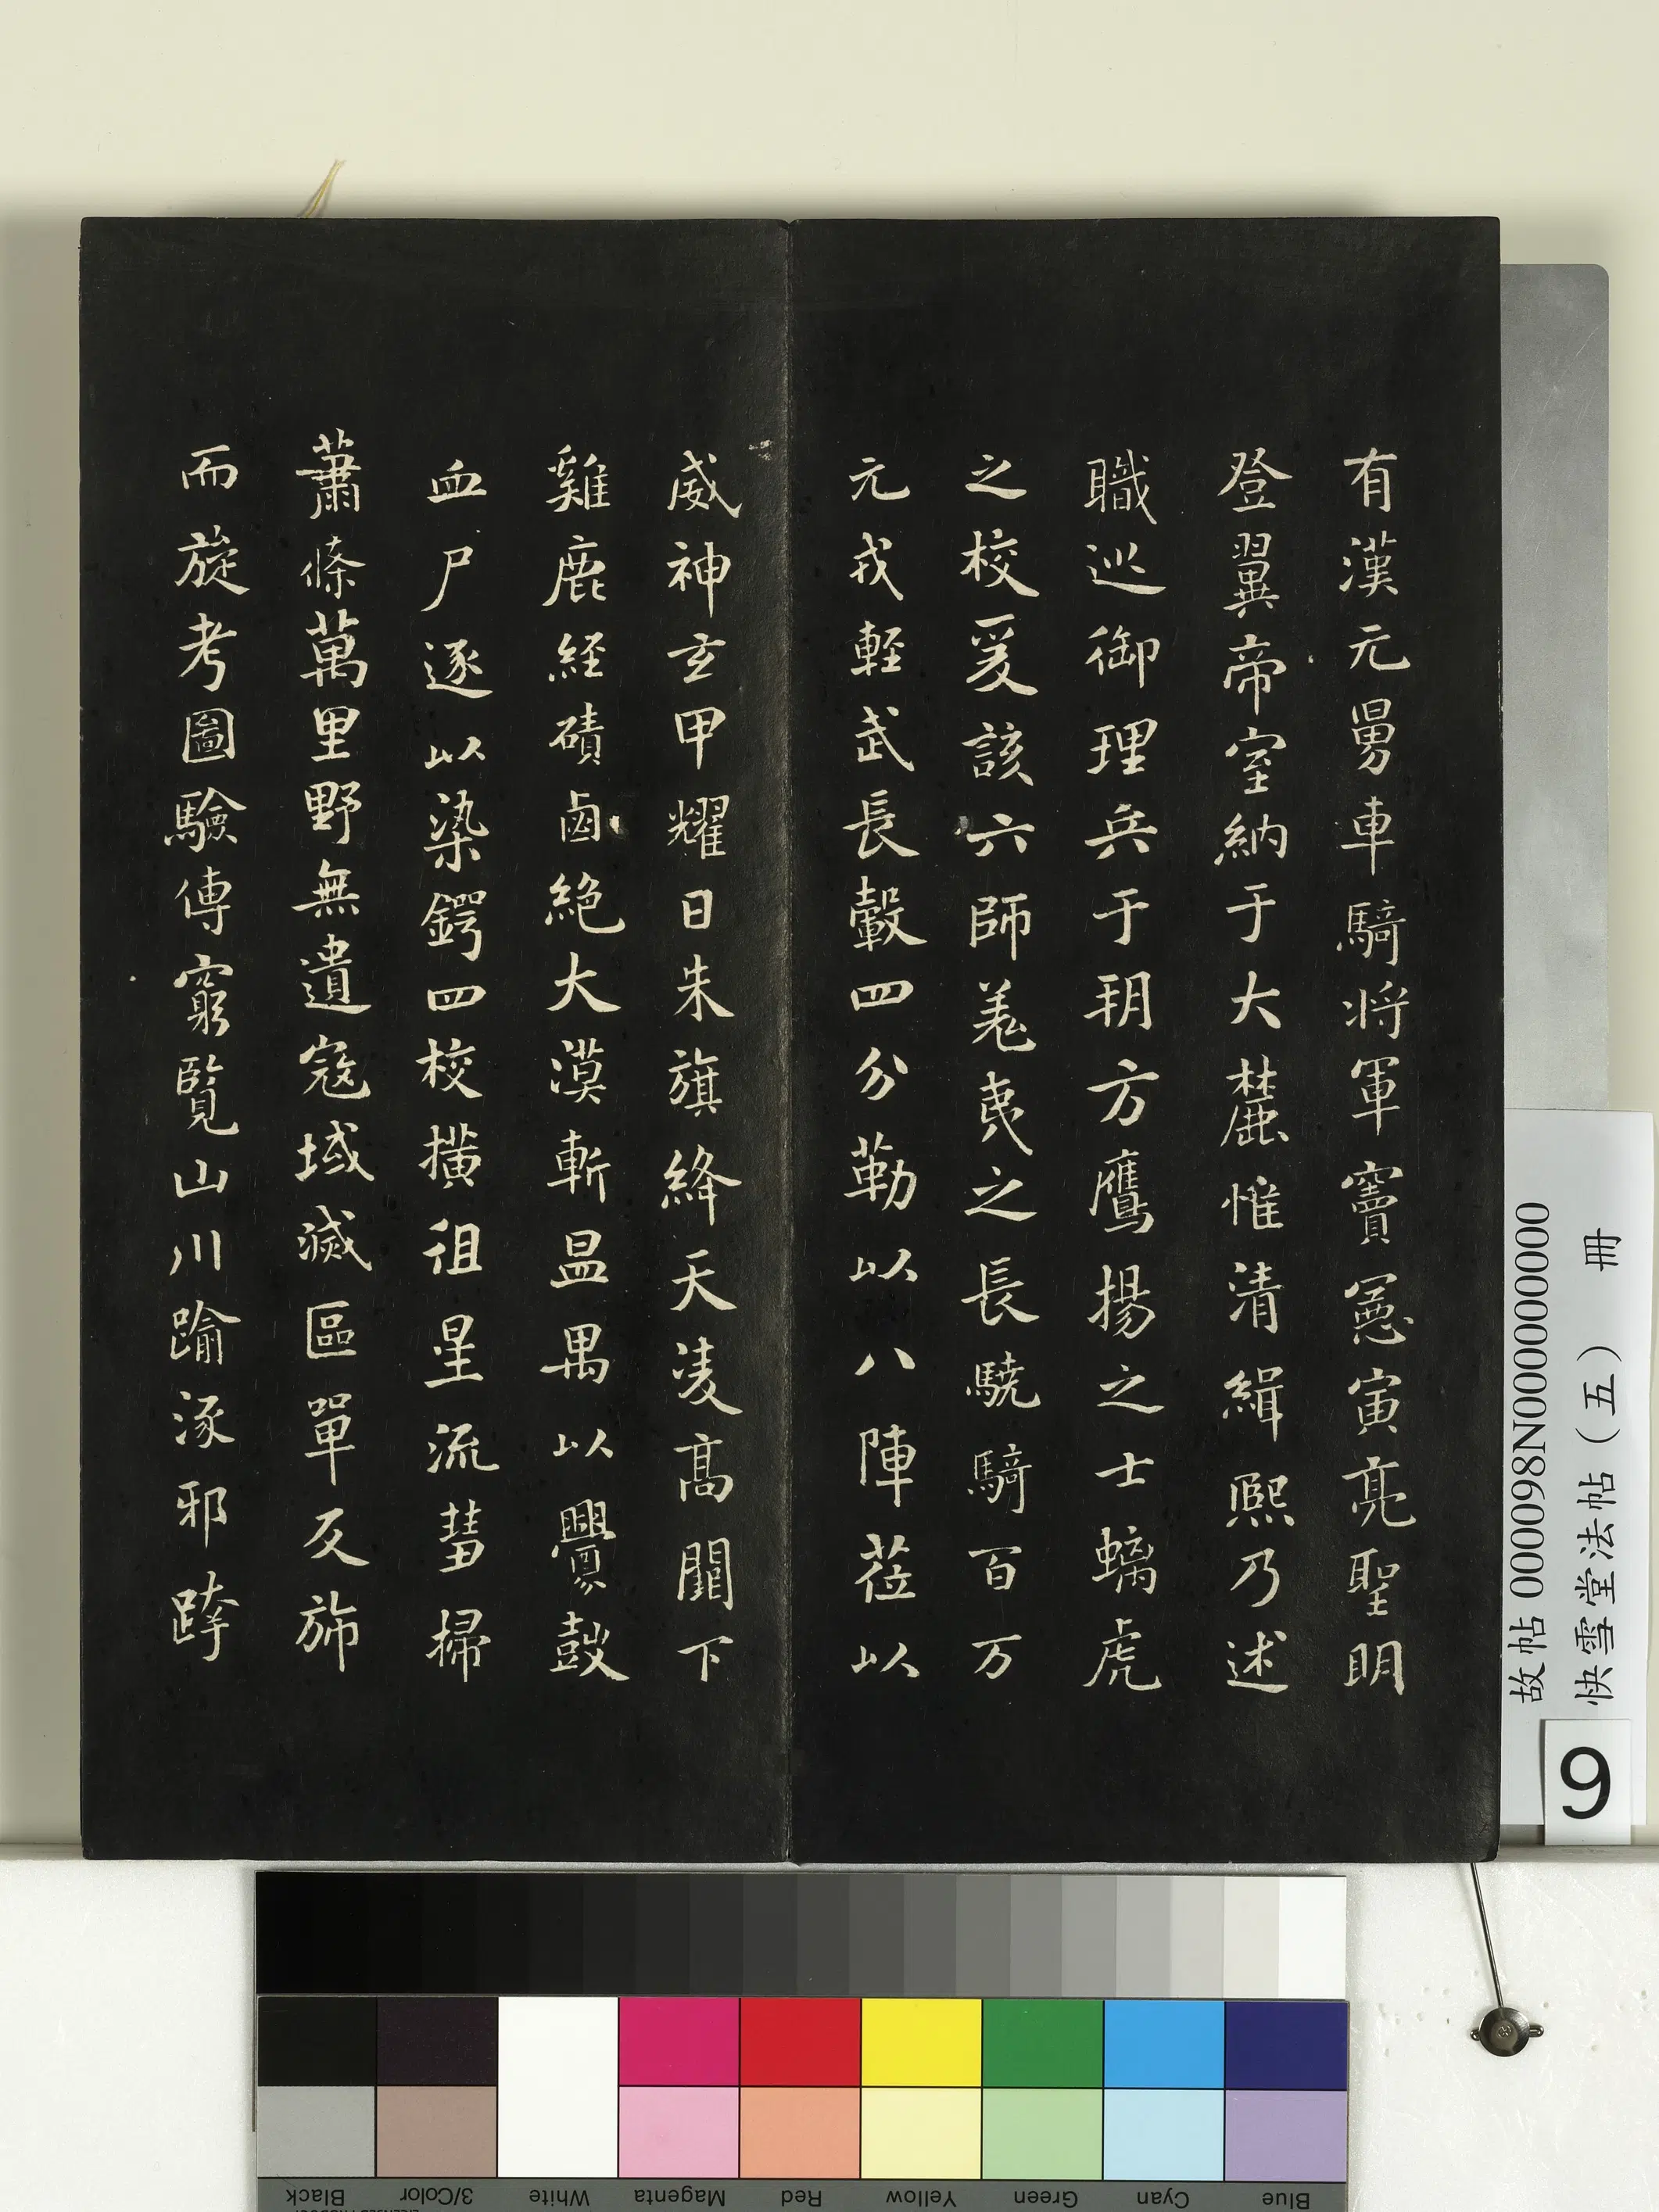 有漢元舅車騎将軍竇憲寅亮聖明
登翼帝室納于大麓惟清緝熙乃述
職巡御理兵于朔方鷹揚之士螭虎
之校爰該六師羌夷之長驍騎百万
元戎軽武長轂四分勒以八陣莅以
威神玄甲耀日朱旗絳天凌髙闕下
雞鹿経磧鹵絶大漠斬昷禺以釁鼓
血尸逐以染鍔四校撗徂星流彗掃
蕭條萬里野無遺寇域滅區單反旆
而旋考圖驗傳窮覽山川踰涿邪跨
故帖 000098N000000000
快雪堂法帖（五） 冊
9
Blue Cyan Green Yellow Red Magenta White 3/Color Black